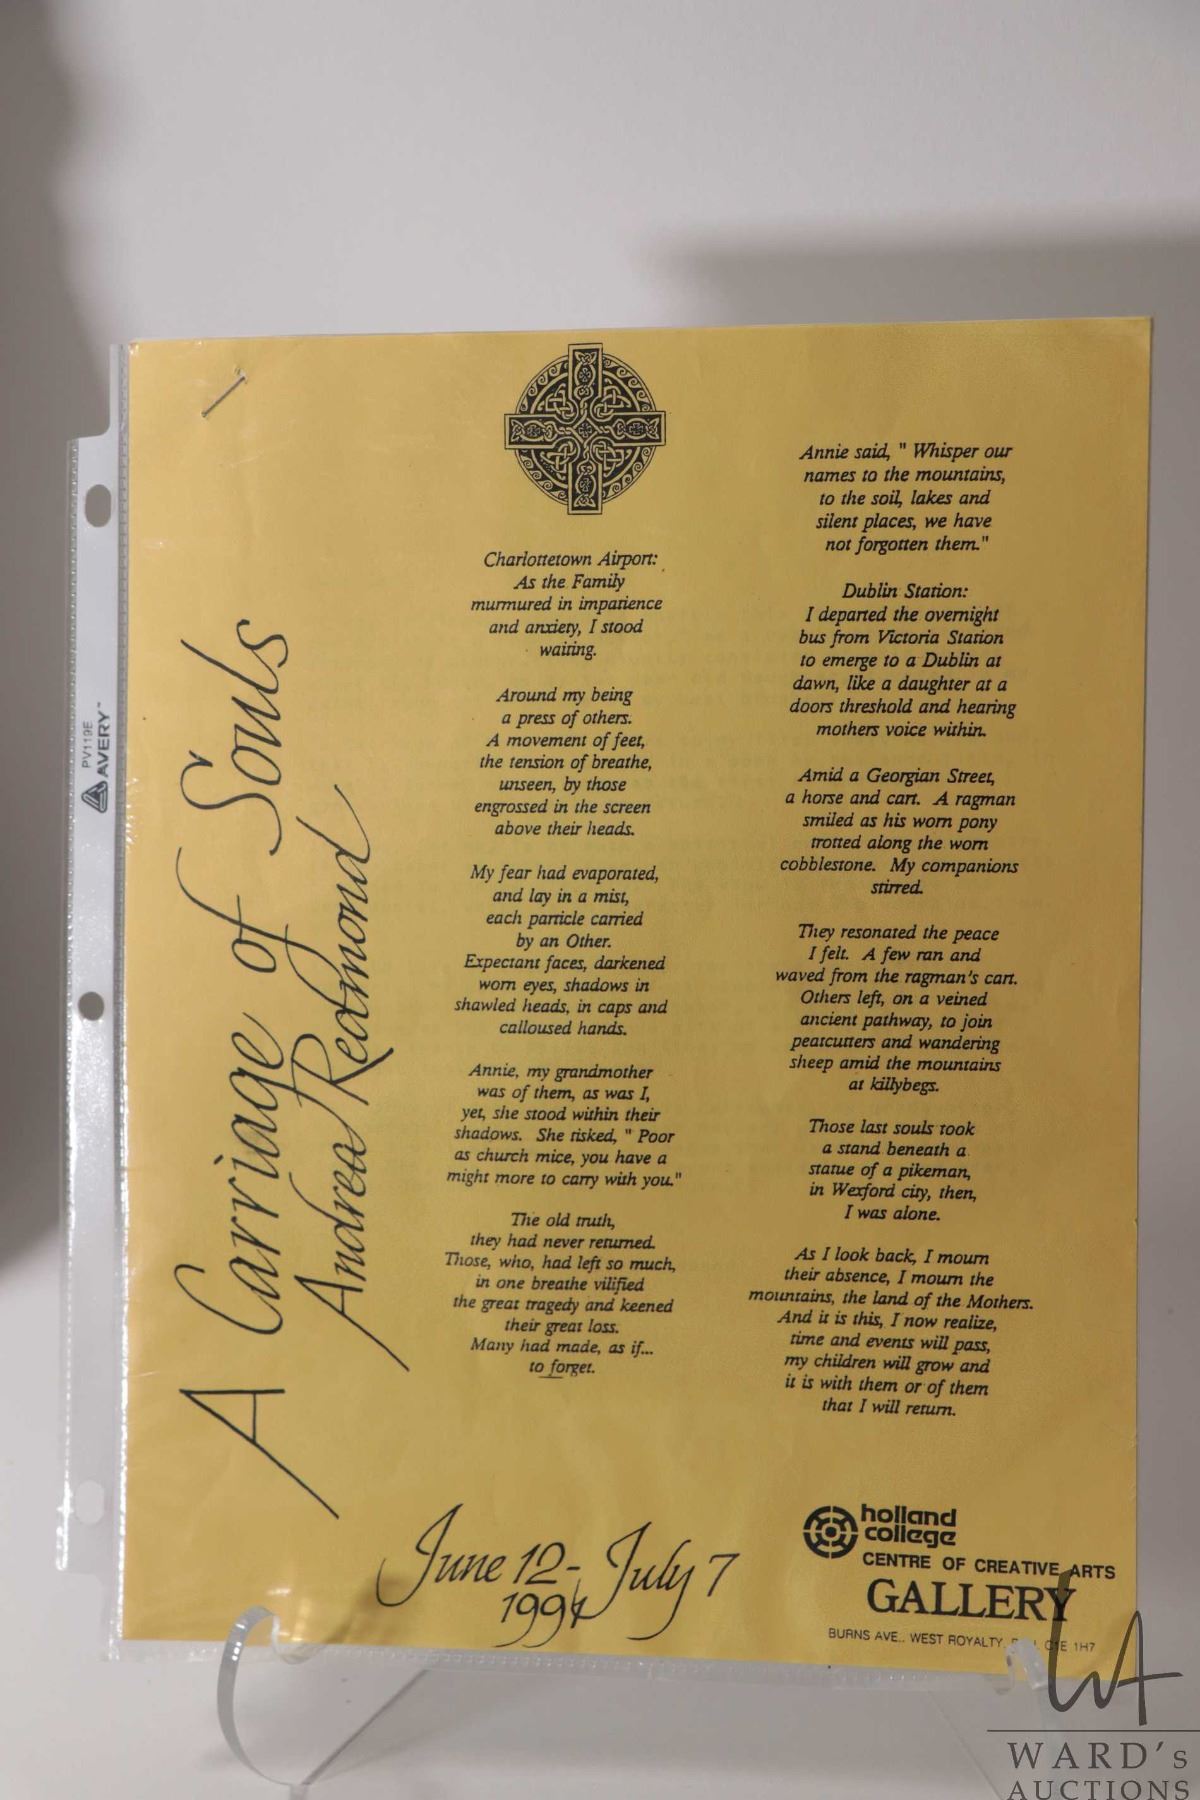 A Carriage of Souls
Andrea Redmond
Charlottetown Airport:
As the Family
murmured in impatience
and anxiety, I stood
waiting.
Around my being
a press of others.
A movement of feet,
the tension of breathe,
unseen, by those
engrossed in the screen
above their heads.
My fear had evaporated,
and lay in a mist,
each particle carried
by an Other.
Expectant faces, darkened
worn eyes, shadows in
shawled heads, in caps and
calloused hands.
Annie, my grandmother
was of them, as was I,
yet, she stood within their
shadows. She tisked, " Poor
as church mice, you have a
might more to carry with you."
The old truth,
they had never returned.
Those, who, had left so much,
in one breathe vilified
the great tragedy and keened
their great loss.
Many had made, as if...
to forget.
Annie said, " Whisper our
names to the mountains,
to the soil, lakes and
silent places, we have
not forgotten them."
Dublin Station:
I departed the overnight
bus from Victoria Station
to emerge to a Dublin at
dawn, like a daughter at a
doors threshold and hearing
mothers voice within.
Amid a Georgian Street,
a horse and cart. A ragman
smiled as his worn pony
trotted along the worn
cobblestone. My companions
stirred.
They resonated the peace
I felt. A few ran and
waved from the ragman's cart.
Others left, on a veined
ancient pathway, to join
peatcutters and wandering
sheep amid the mountains
at killybegs.
Those last souls took
a stand beneath a
statue of a pikeman,
in Wexford city, then,
I was alone.
As I look back, I mourn
their absence, I mourn the
mountains, the land of the Mothers.
And it is this, I now realize,
time and events will pass,
my children will grow and
it is with them or of them
that I will return.
June 12 - July 7
1994
holland
college
CENTRE OF CREATIVE ARTS
GALLERY
BURNS AVE., WEST ROYALTY, C1E 1H7
PV119E
AVERY™
WA
WARD's
AUCTIONS